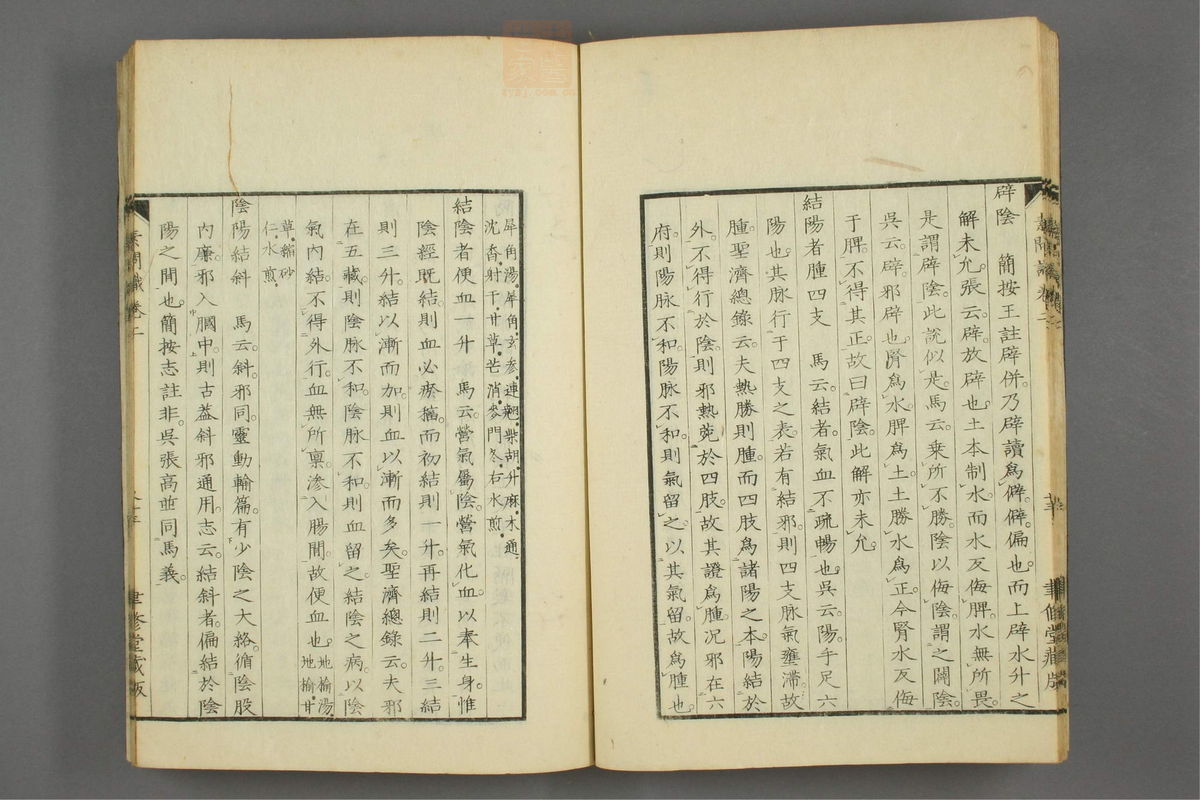 辟陰　簡按王註辟併乃辟讀爲僻僻偏也而上辟水升之
解未允張云辟放辟也土本制水而水反侮脾水無所畏
是謂辟陰此說似是馬云乘所不勝陰以侮陰謂之闢陰
吳云辟邪辟也腎爲水脾爲土土勝水爲正今腎水反侮
于脾不得其正故曰辟陰此解亦未允
結陽者腫四支　馬云結者氣血不疏暢也吳云陽手足六
陽也其脉行于四支之表若有結邪則四支脉氣壅滞故
腫聖濟總錄云夫熱勝則腫而四肢爲諸陽之本陽結於
外不得行於陰則邪熱菀於四肢故其證爲腫况邪在六
府則陽脉不和陽脉不和則氣留之以其氣留故爲腫也
犀角湯犀角玄参連翹柴胡升麻木通
沈香射干甘草芒消麥門冬右水煎
結陰者便血一升　馬云營氣屬陰營氣化血以奉生身惟
陰經既結則血必瘀穑而初結則一升再結則二升三結
則三升結以漸而加則血以漸而多矣聖濟總錄云夫邪
在五藏則陰脉不和陰脉不和則血留之結陰之病以陰
氣內結不得外行血無所稟滲入腸間故便血也地榆湯
地榆甘
草縮砂
仁水煎
陰陽結斜　馬云斜邪同靈動輸篇有少陰之大絡循陰股
內廉邪入膕中則古蓋斜邪通用志云結斜者偏結於陰
陽之間也簡按志註非吳張高並同馬義
素問識卷二
聿修堂藏版